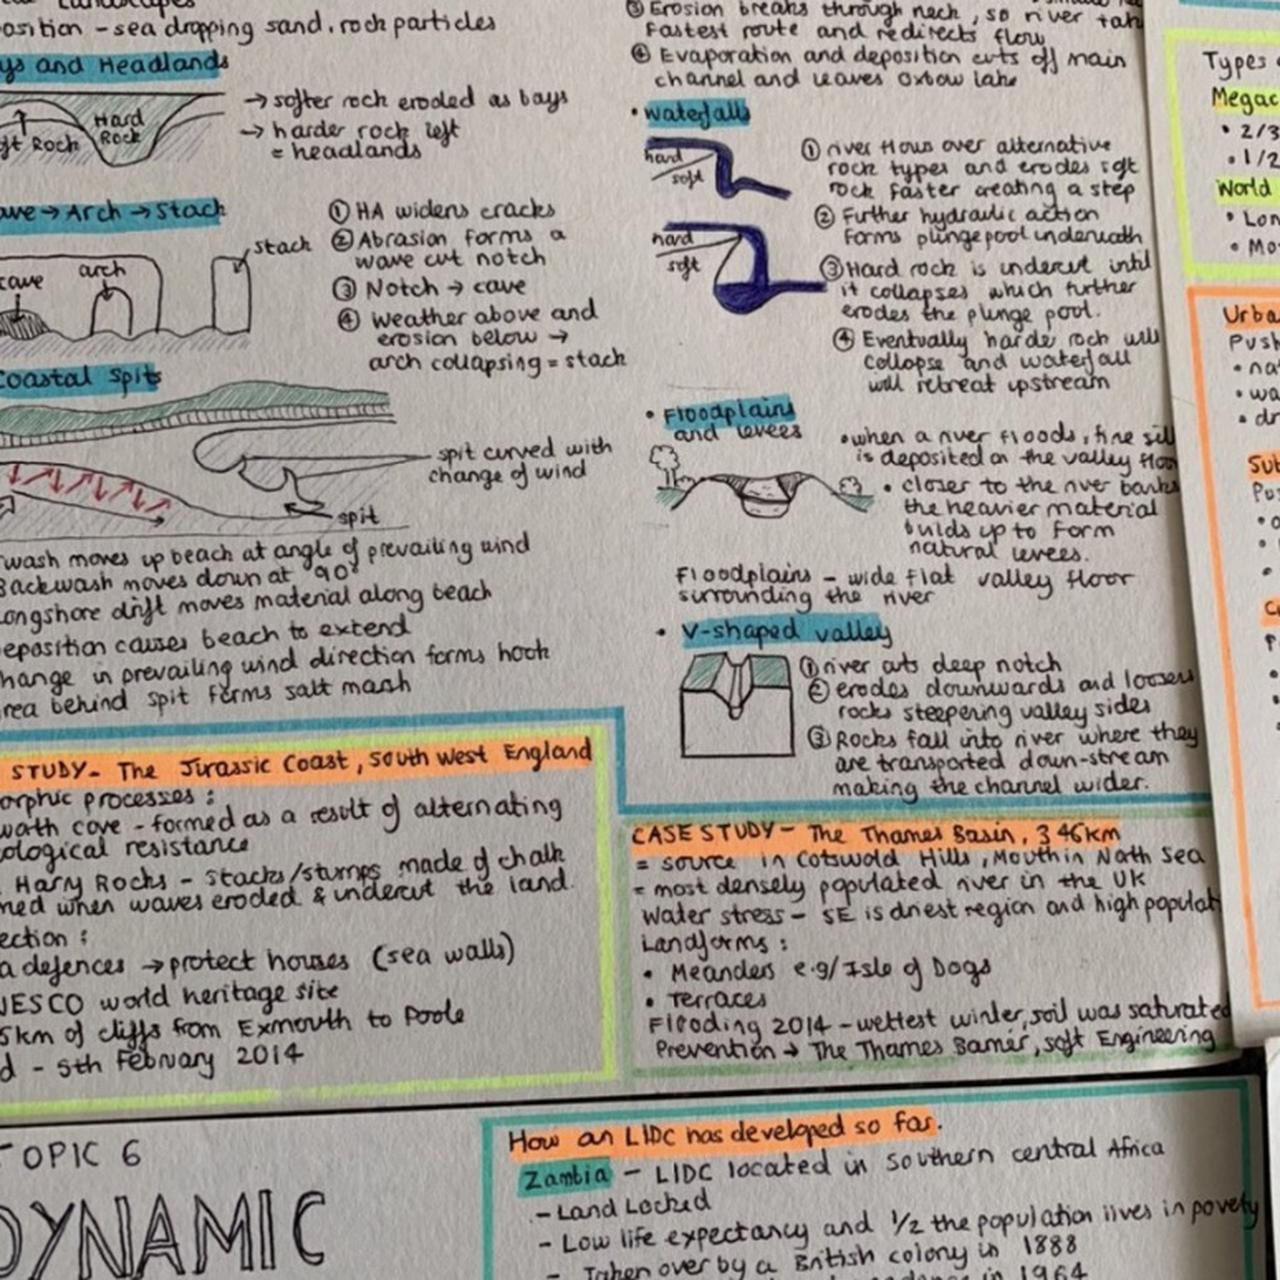 osition - sea dropping sand, rock particles
ys and Headlands
Hard
Rock
ft Rock
→ softer rock eroded as bays
→ harder rock left
= headlands
ave → Arch → Stack
stack
arch
cave
① HA widens cracks
② Abrasion forms a
wave cut notch
③ Notch → cave
④ weather above and
erosion below →
arch collapsing = stack
Coastal Spits
spit curved with
change of wind
spit
wash moves up beach at angle of prevailing wind
Backwash moves down at 90°
ongshore drift moves material along beach
eposition causes beach to extend
hange in prevailing wind direction forms hook
rea behind spit forms salt marsh
STUDY - The Jurassic Coast, South West England
orphic processes:
worth cove - formed as a result of alternating
ological resistance
Harry Rocks - stacks/stumps made of chalk
med when waves eroded & undercut the land.
ection:
a defences → protect houses (sea walls)
NESCO world heritage site
5km of cliffs from Exmouth to Poole
d - 5th February 2014
③ Erosion breaks through neck, so river tak
fastest route and redirects flow
④ Evaporation and deposition cuts off main
channel and leaves oxbow lake
• Waterfalls
hard
soft
hard
soft
① river flows over alternative
rock types and erodes soft
rock faster creating a step
② Further hydraulic action
forms plunge pool underneath
③ Hard rock is undercut intil
it collapses which further
erodes the plunge pool.
④ Eventually harde rock will
collapse and waterfall
will retreat upstream
• Floodplains
and levees
• when a river floods, fine sil
is deposited on the valley floor
• closer to the river banks
the heavier material
builds up to form
natural levees.
Floodplains - wide flat valley floor
surrounding the river
• V-shaped valley
① river cuts deep notch
② erodes downwards and loosens
rocks steepering valley sides
③ Rocks fall into river where they
are transported down-stream
making the channel wider.
CASE STUDY - The Thames Basin, 346km
= source in Cotswold Hills, Mouth in North Sea
= most densely populated river in the UK
Water stress - SE is driest region and high populat
Landforms:
• Meanders e.g/ Isle of Dogs
• Terraces
Flooding 2014 - wettest winter, soil was saturated
Prevention → The Thames Barrier, soft Engineering
Types
Megac
• 2/3
• 1/2
World
• Lon
• Mo
Urba
Push
• na
• wa
• dr
Sub
TOPIC 6
DYNAMIC
How an LIDC has developed so far.
Zambia - LIDC located in southern central Africa
- Land Locked
- Low life expectancy and 1/2 the population lives in poverty
- Taken over by a British colony in 1888
in 1964